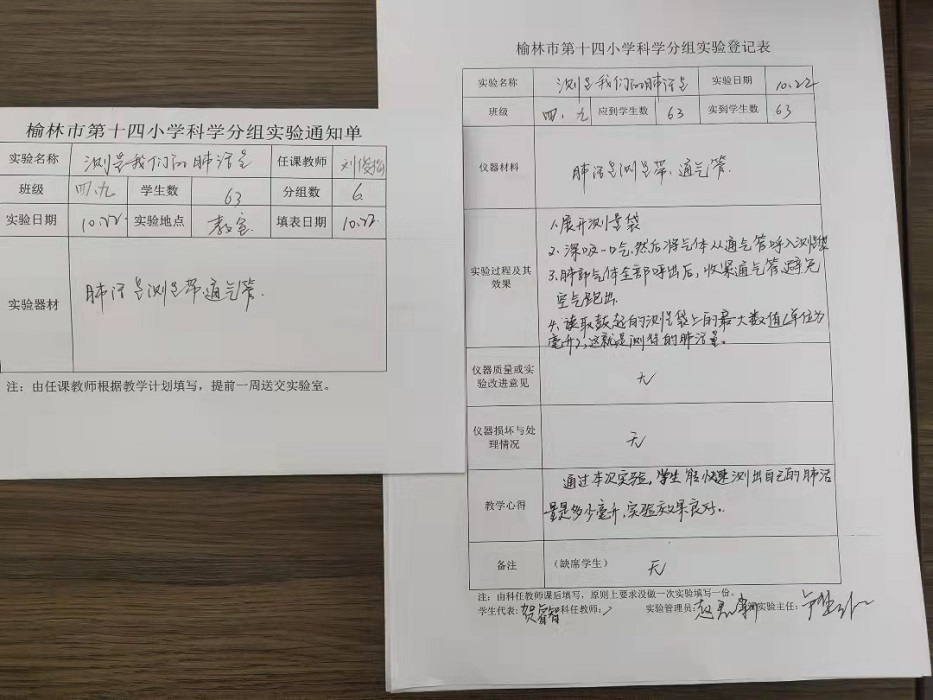 榆林市第十四小学科学分组实验通知单
实验名称 测量我们的肺活量 任课教师
班级 四.九 学生数 63 分组数 6
实验日期 10.22 实验地点 教室 填表日期 10.22
实验器材 肺活量测量带.通气管.
注：由任课教师根据教学计划填写，提前一周送交实验室。
榆林市第十四小学科学分组实验登记表
实验名称 测量我们的肺活量 实验日期 10.22
班级 四.九 应到学生数 63 实到学生数 63
仪器材料 肺活量测量带、通气管.
实验过程及其
效果
1.展开测量袋
2.深吸一口气.然后将气体从通气管呼入测量袋
3.肺部气体全部呼出后，收紧通气管避免
空气跑出.
4.读取鼓起的测量袋上的最大数值(单位为
毫升),这就是测得的肺活量。
仪器质量或实
验改进意见
无
仪器损坏与处
理情况
无
教学心得
通过本次实验，学生能快速测出自己的肺活
量是多少毫升，实验效果良好。
备注 （缺席学生） 无
注：由科任教师课后填写，原则上要求没做一次实验填写一份。
学生代表：贺睿智 科任教师： 实验管理员： 实验主任：